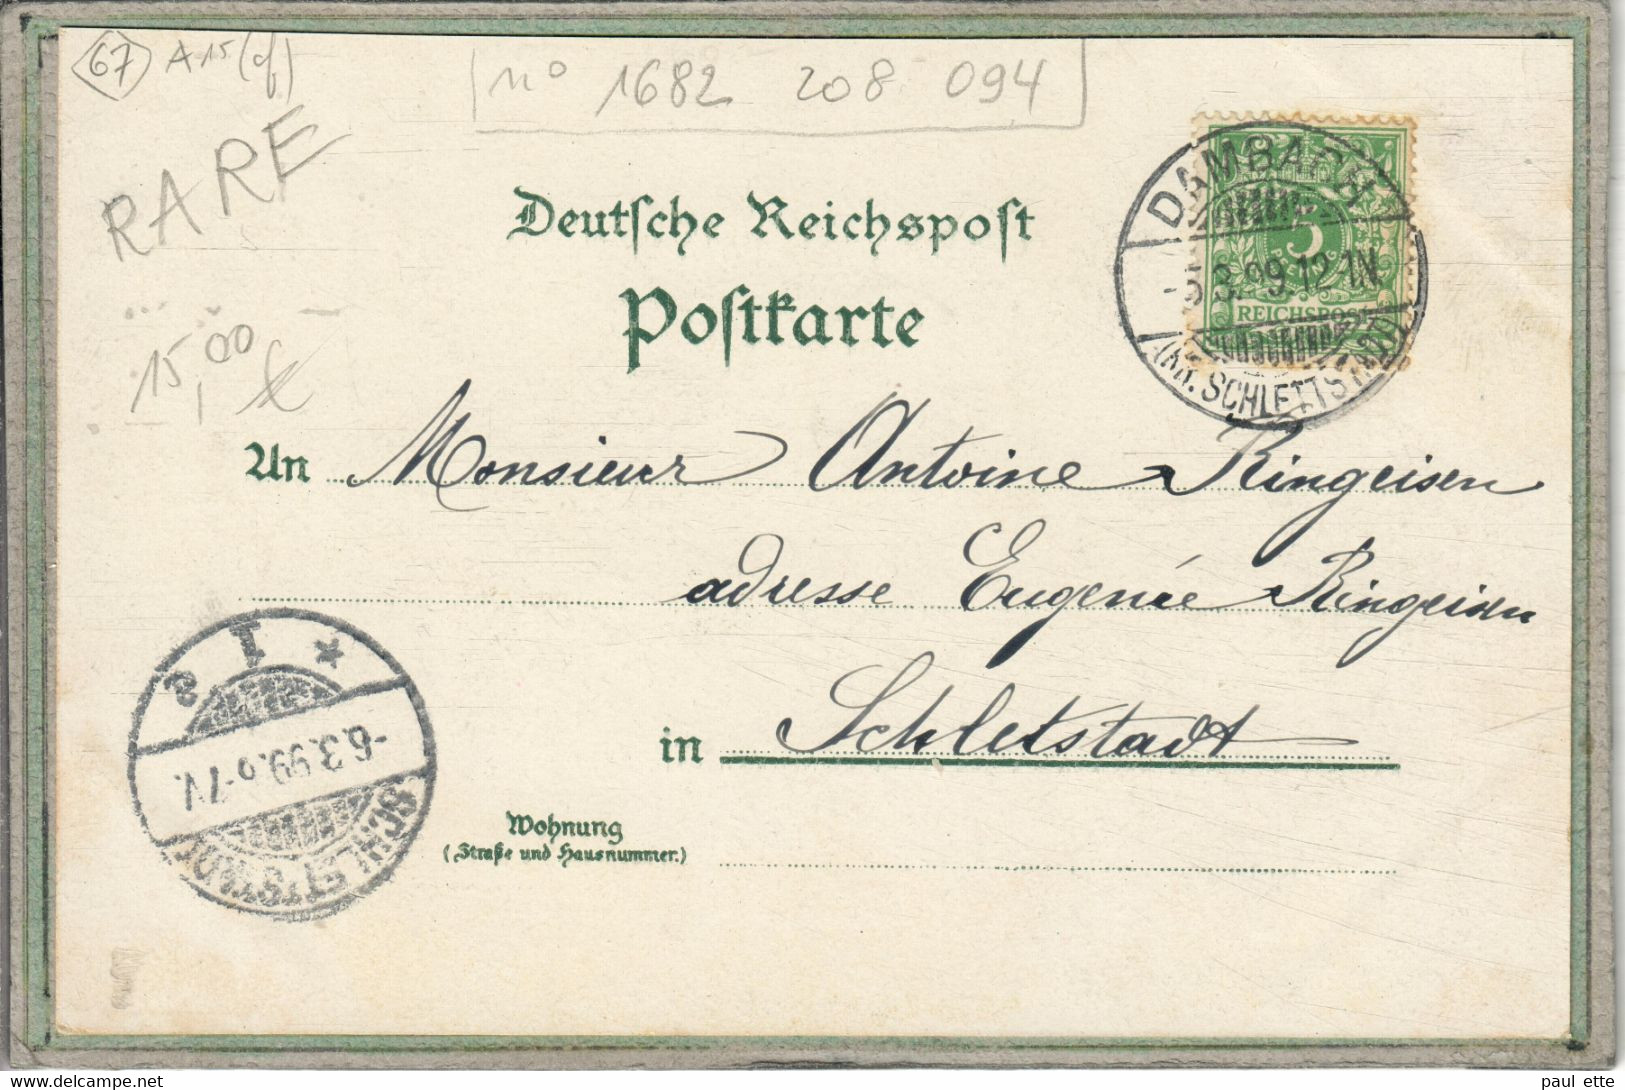 67 A15 (cf)
n° 1682 208 094
RARE
15,00 €
Deutsche Reichspost
Postkarte
DAMBACH
3.99.12-1N.
(KR. SCHLETTSTADT)
5
REICHSPOST
An Monsieur Antoine Ringeisen
adresse Eugenie Ringeisen
in Schletstadt
Wohnung
(Straße und Hausnummer.)
SCHLETTSTADT
-6.3.99.6-7V.
* 1 a
paul ette